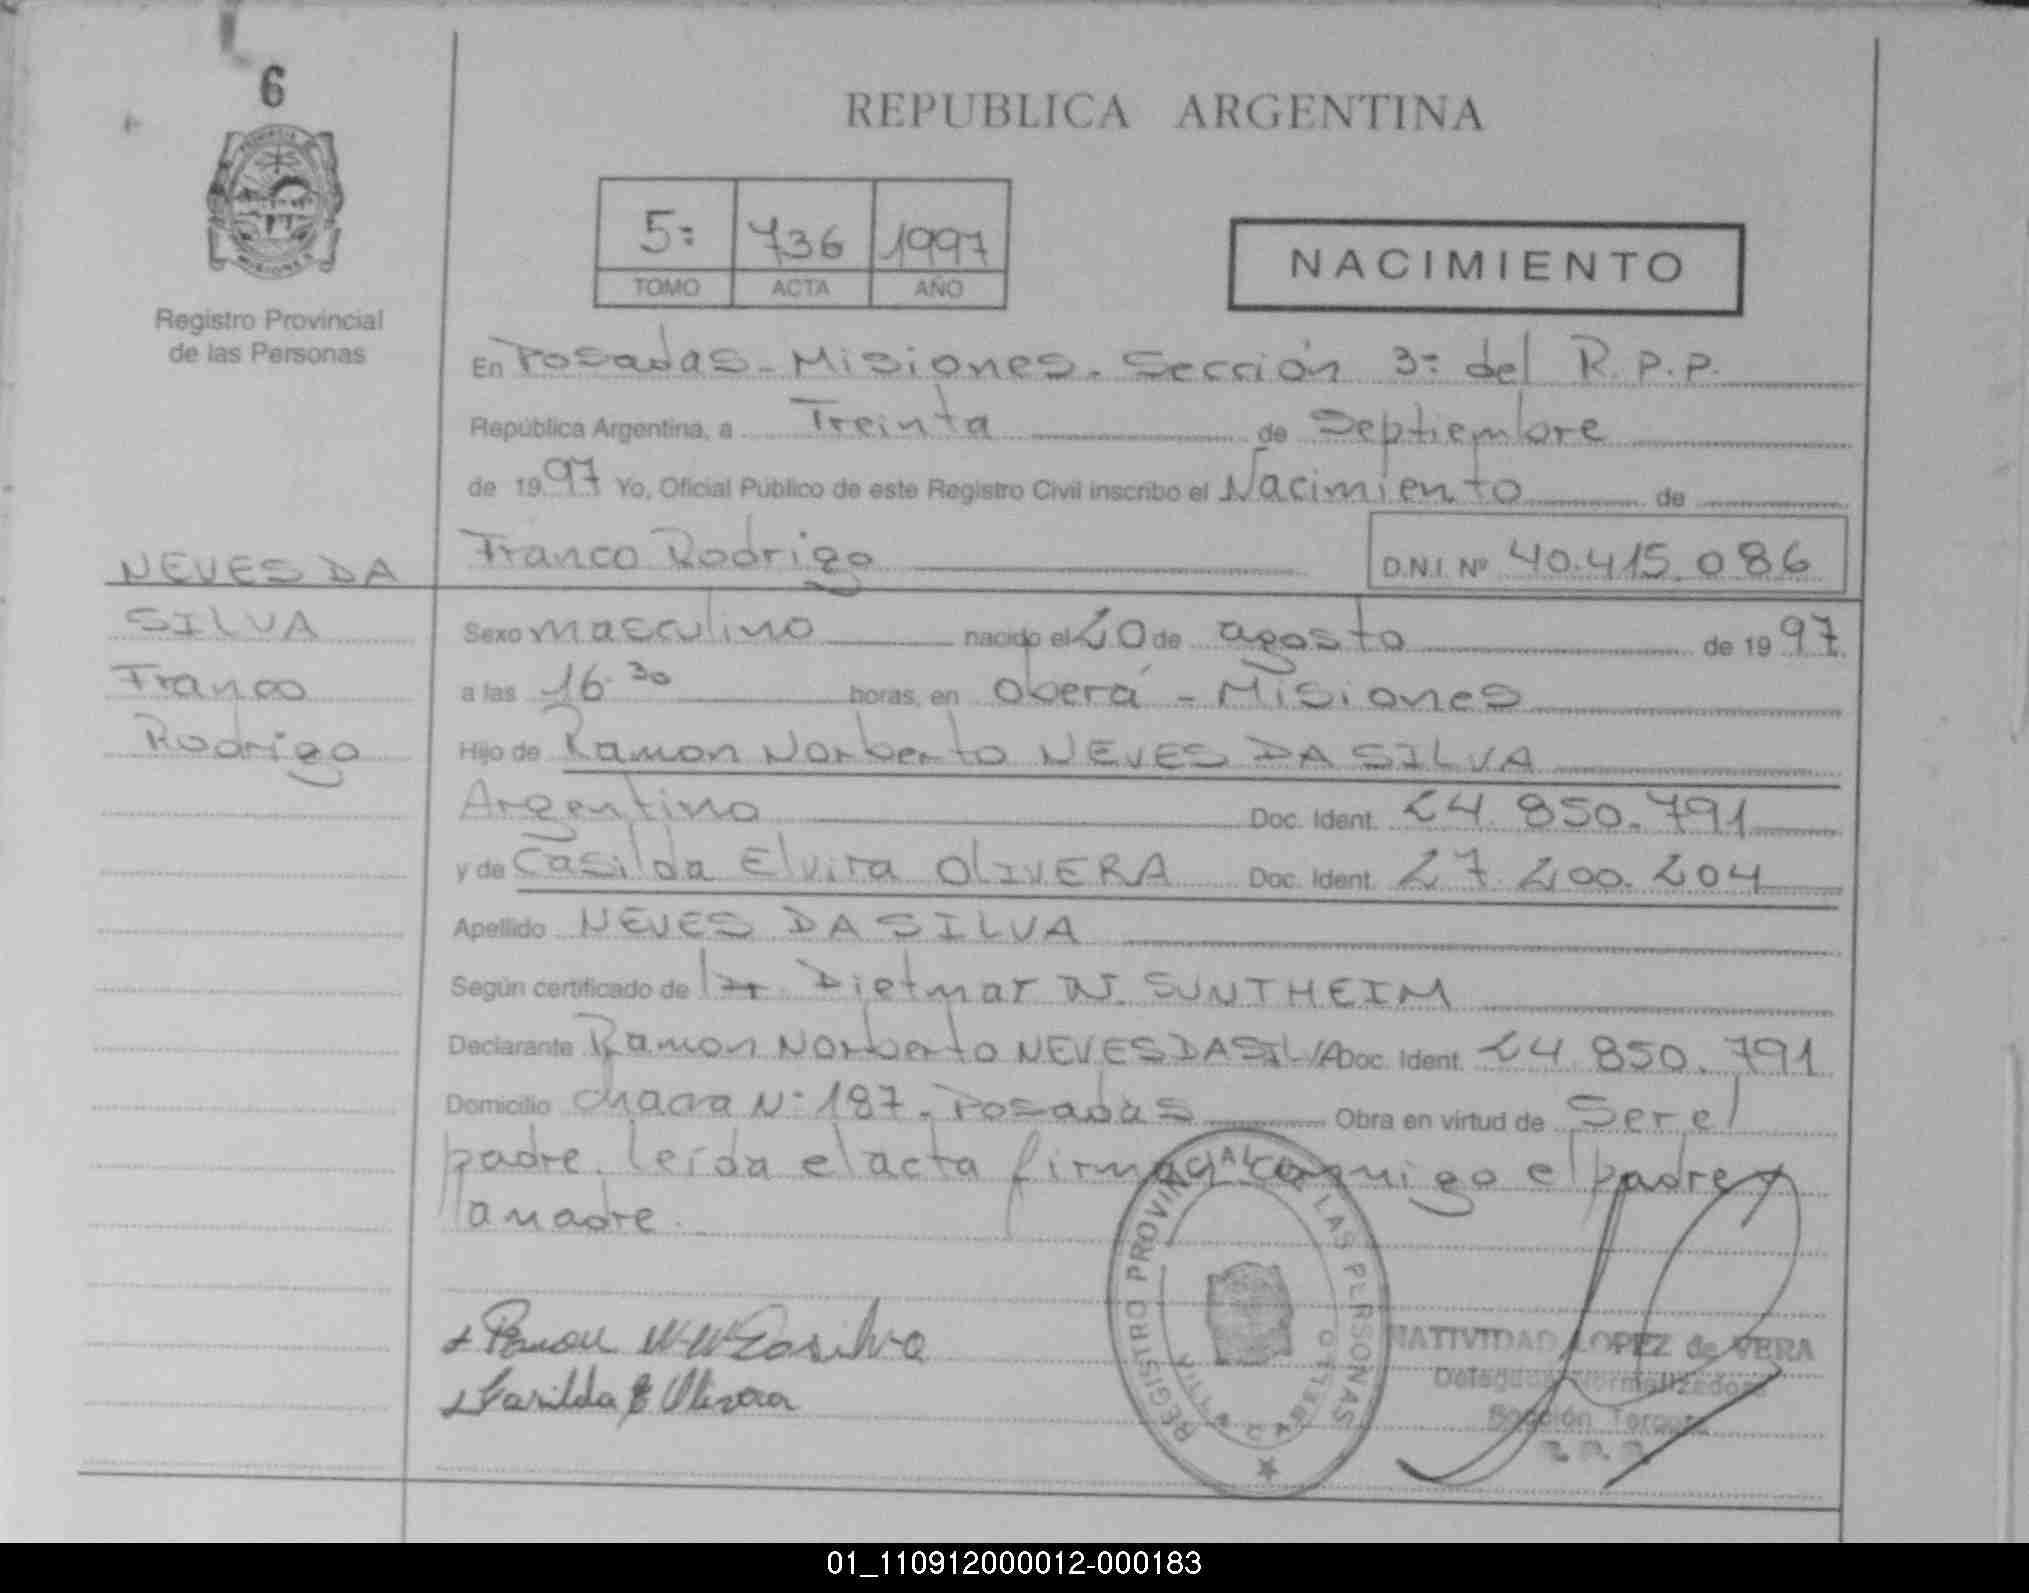 6
REPUBLICA ARGENTINA
5= 736 1997
TOMO ACTA AÑO
NACIMIENTO
Registro Provincial
de las Personas
En Posadas - Misiones. Sección 3= del R.P.P.
República Argentina, a Treinta de Septiembre
de 1997 Yo, Oficial Público de este Registro Civil inscribo el Nacimiento de
Franco Rodrigo D.N.I. Nº 40.415.086
NEVES DA
SILVA
Franco
Rodrigo
Sexo masculino nacido el 20 de agosto de 1997
a las 16.30 horas, en Oberá - Misiones
Hijo de Ramon Norberto NEVES DA SILVA
Argentino Doc. Ident. 24.850.791
y de Casilda Elvira OLIVERA Doc. Ident. 27.200.204
Apellido NEVES DA SILVA
Según certificado de Dr. Dietmar W. SUNTHEIM
Declarante Ramon Norberto NEVES DA SILVA Doc. Ident. 24.850.791
Domicilio chacra Nº 187. Posadas Obra en virtud de Ser el
padre. leída el acta firman conmigo el padre y
la madre.
Ramon N. N Dasilva
Casilda E Olivera
REGISTRO PROVINCIAL DE LAS PERSONAS
VILLA CABELLO
NATIVIDAD LOPEZ de VERA
Delegada Normalizadora
Sección Tercera
R.P.P.
01_110912000012-000183